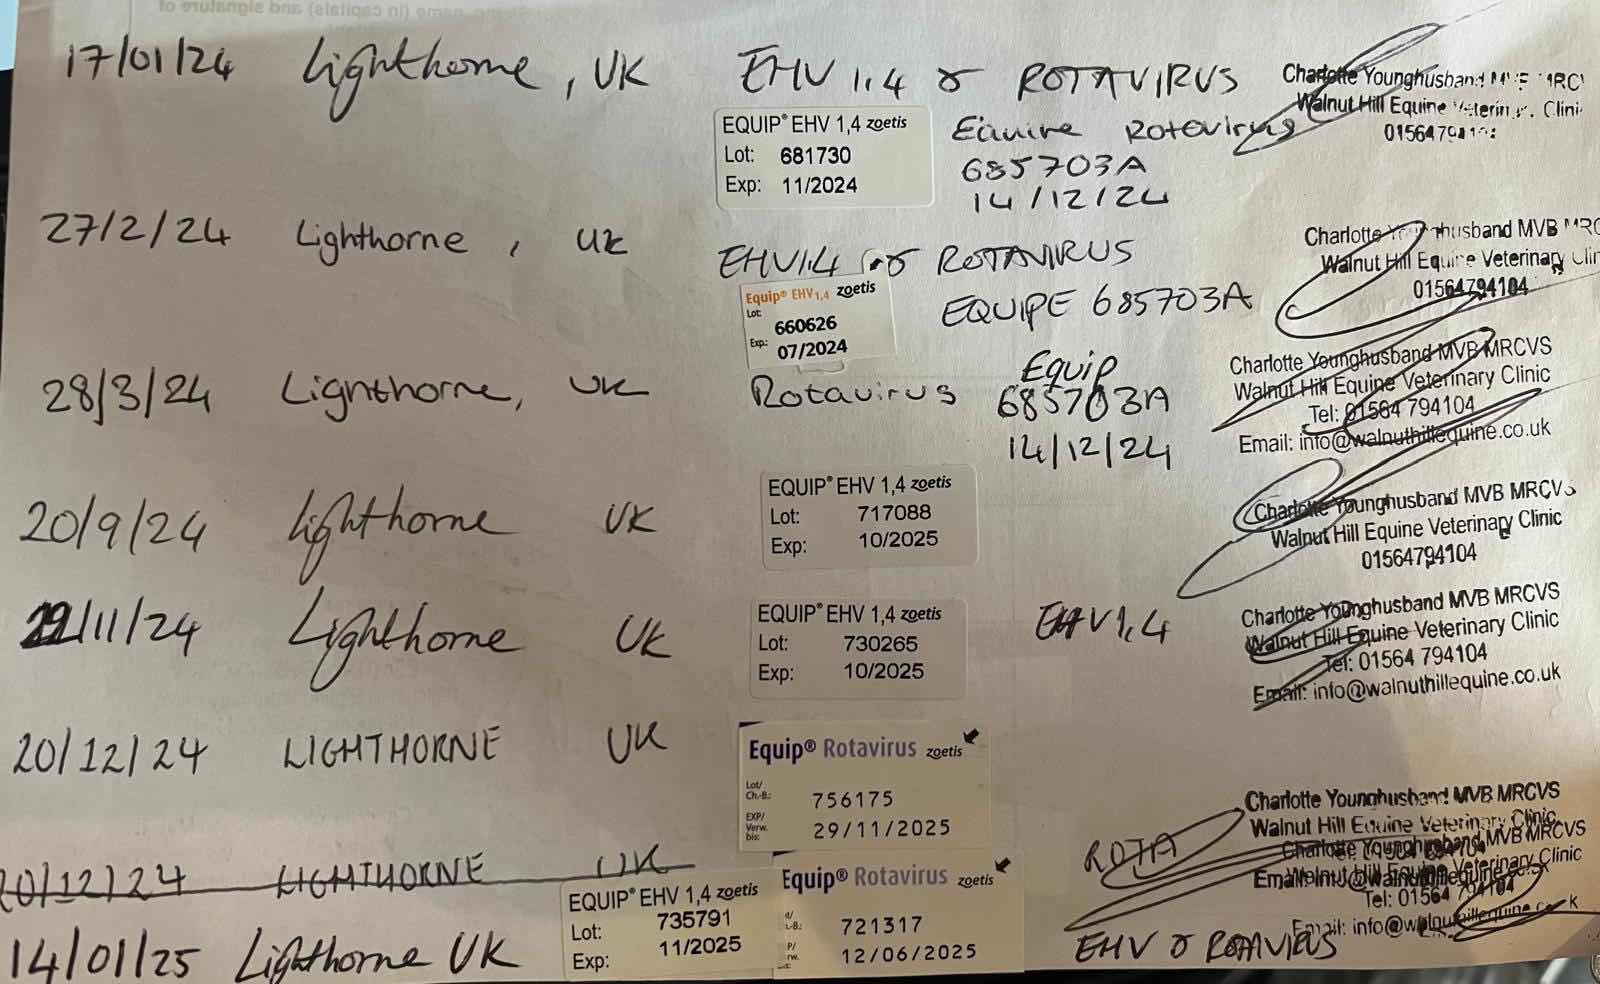 17/01/24 Lighthorne, UK EHV 1,4 & ROTAVIRUS
EQUIP® EHV 1,4 zoetis
Lot: 681730
Exp: 11/2024
Equine Rotavirus
685703A
14/12/24
Charlotte Younghusband
Walnut Hill Equine
27/2/24 Lighthorne, UK EHV1,4 & ROTAVIRUS
Equip® EHV 1,4 zoetis
Lot: 660626
Exp.: 07/2024
EQUIPE 685703A
Charlotte MVB
Walnut Hill Equine Veterinary
01564794104
28/3/24 Lighthorne, UK Rotavirus Equip
685703A
14/12/24
Charlotte Younghusband MVB MRCVS
Walnut Hill Equine Veterinary Clinic
Tel: 01564 794104
Email: info@walnuthillequine.co.uk
20/9/24 Lighthorne UK
EQUIP® EHV 1,4 zoetis
Lot: 717088
Exp: 10/2025
Charlotte Younghusband MVB MRCVS
Walnut Hill Equine Veterinary Clinic
01564794104
/11/24 Lighthorne UK
EQUIP® EHV 1,4 zoetis
Lot: 730265
Exp: 10/2025
EHV1,4
Charlotte Younghusband MVB MRCVS
Walnut Hill Equine Veterinary Clinic
Tel: 01564 794104
Email: info@walnuthillequine.co.uk
20/12/24 LIGHTHORNE UK
Equip® Rotavirus zoetis
Lot/ Ch.-B.: 756175
EXP/ Verw. bis: 29/11/2025
ROTA
Charlotte Younghusband MVB MRCVS
Walnut Hill Equine Veterinary Clinic
20/12/24 LIGHTHORNE UK
14/01/25 Lighthorne UK
EQUIP® EHV 1,4 zoetis
Lot: 735791
Exp: 11/2025
Equip® Rotavirus zoetis
721317
12/06/2025
EHV & ROTAVIRUS
Charlotte Younghusband MVB MRCVS
Walnut Hill Equine Veterinary Clinic
Tel: 01564 794104
Email: info@walnuthillequine.co.uk